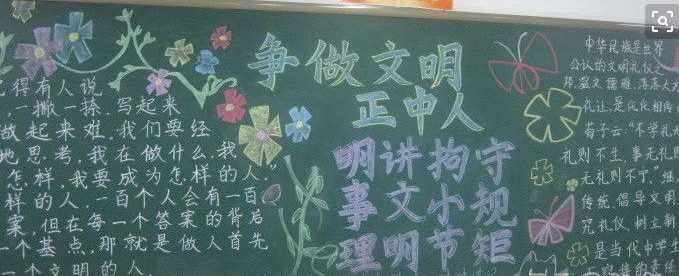 得有人说
,一撇一捺,写起来
做起来难,我们要经
地思考,我在做什么,我
怎样,我要成为怎样的人。
样的人。一百个人会有一百
案,但在每一个答案的背后
一个基点,那就是做人首先
一个文明的人,
争做文明
正中人
明讲拘守
事文小规
理明节矩
中华民族是世界
公认的文明礼仪之
邦,温文儒雅,落落大
礼让,是
荀子云:“不学礼无
礼则不生,事无礼则
无礼则不宁。”继
传统 倡导文明
究礼仪,树立新
是当代中学生
的责任